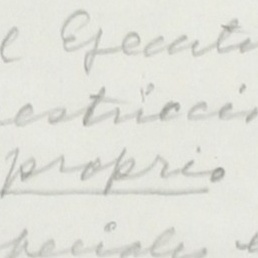 l Ejecuti
estricció
proprio
peciales e